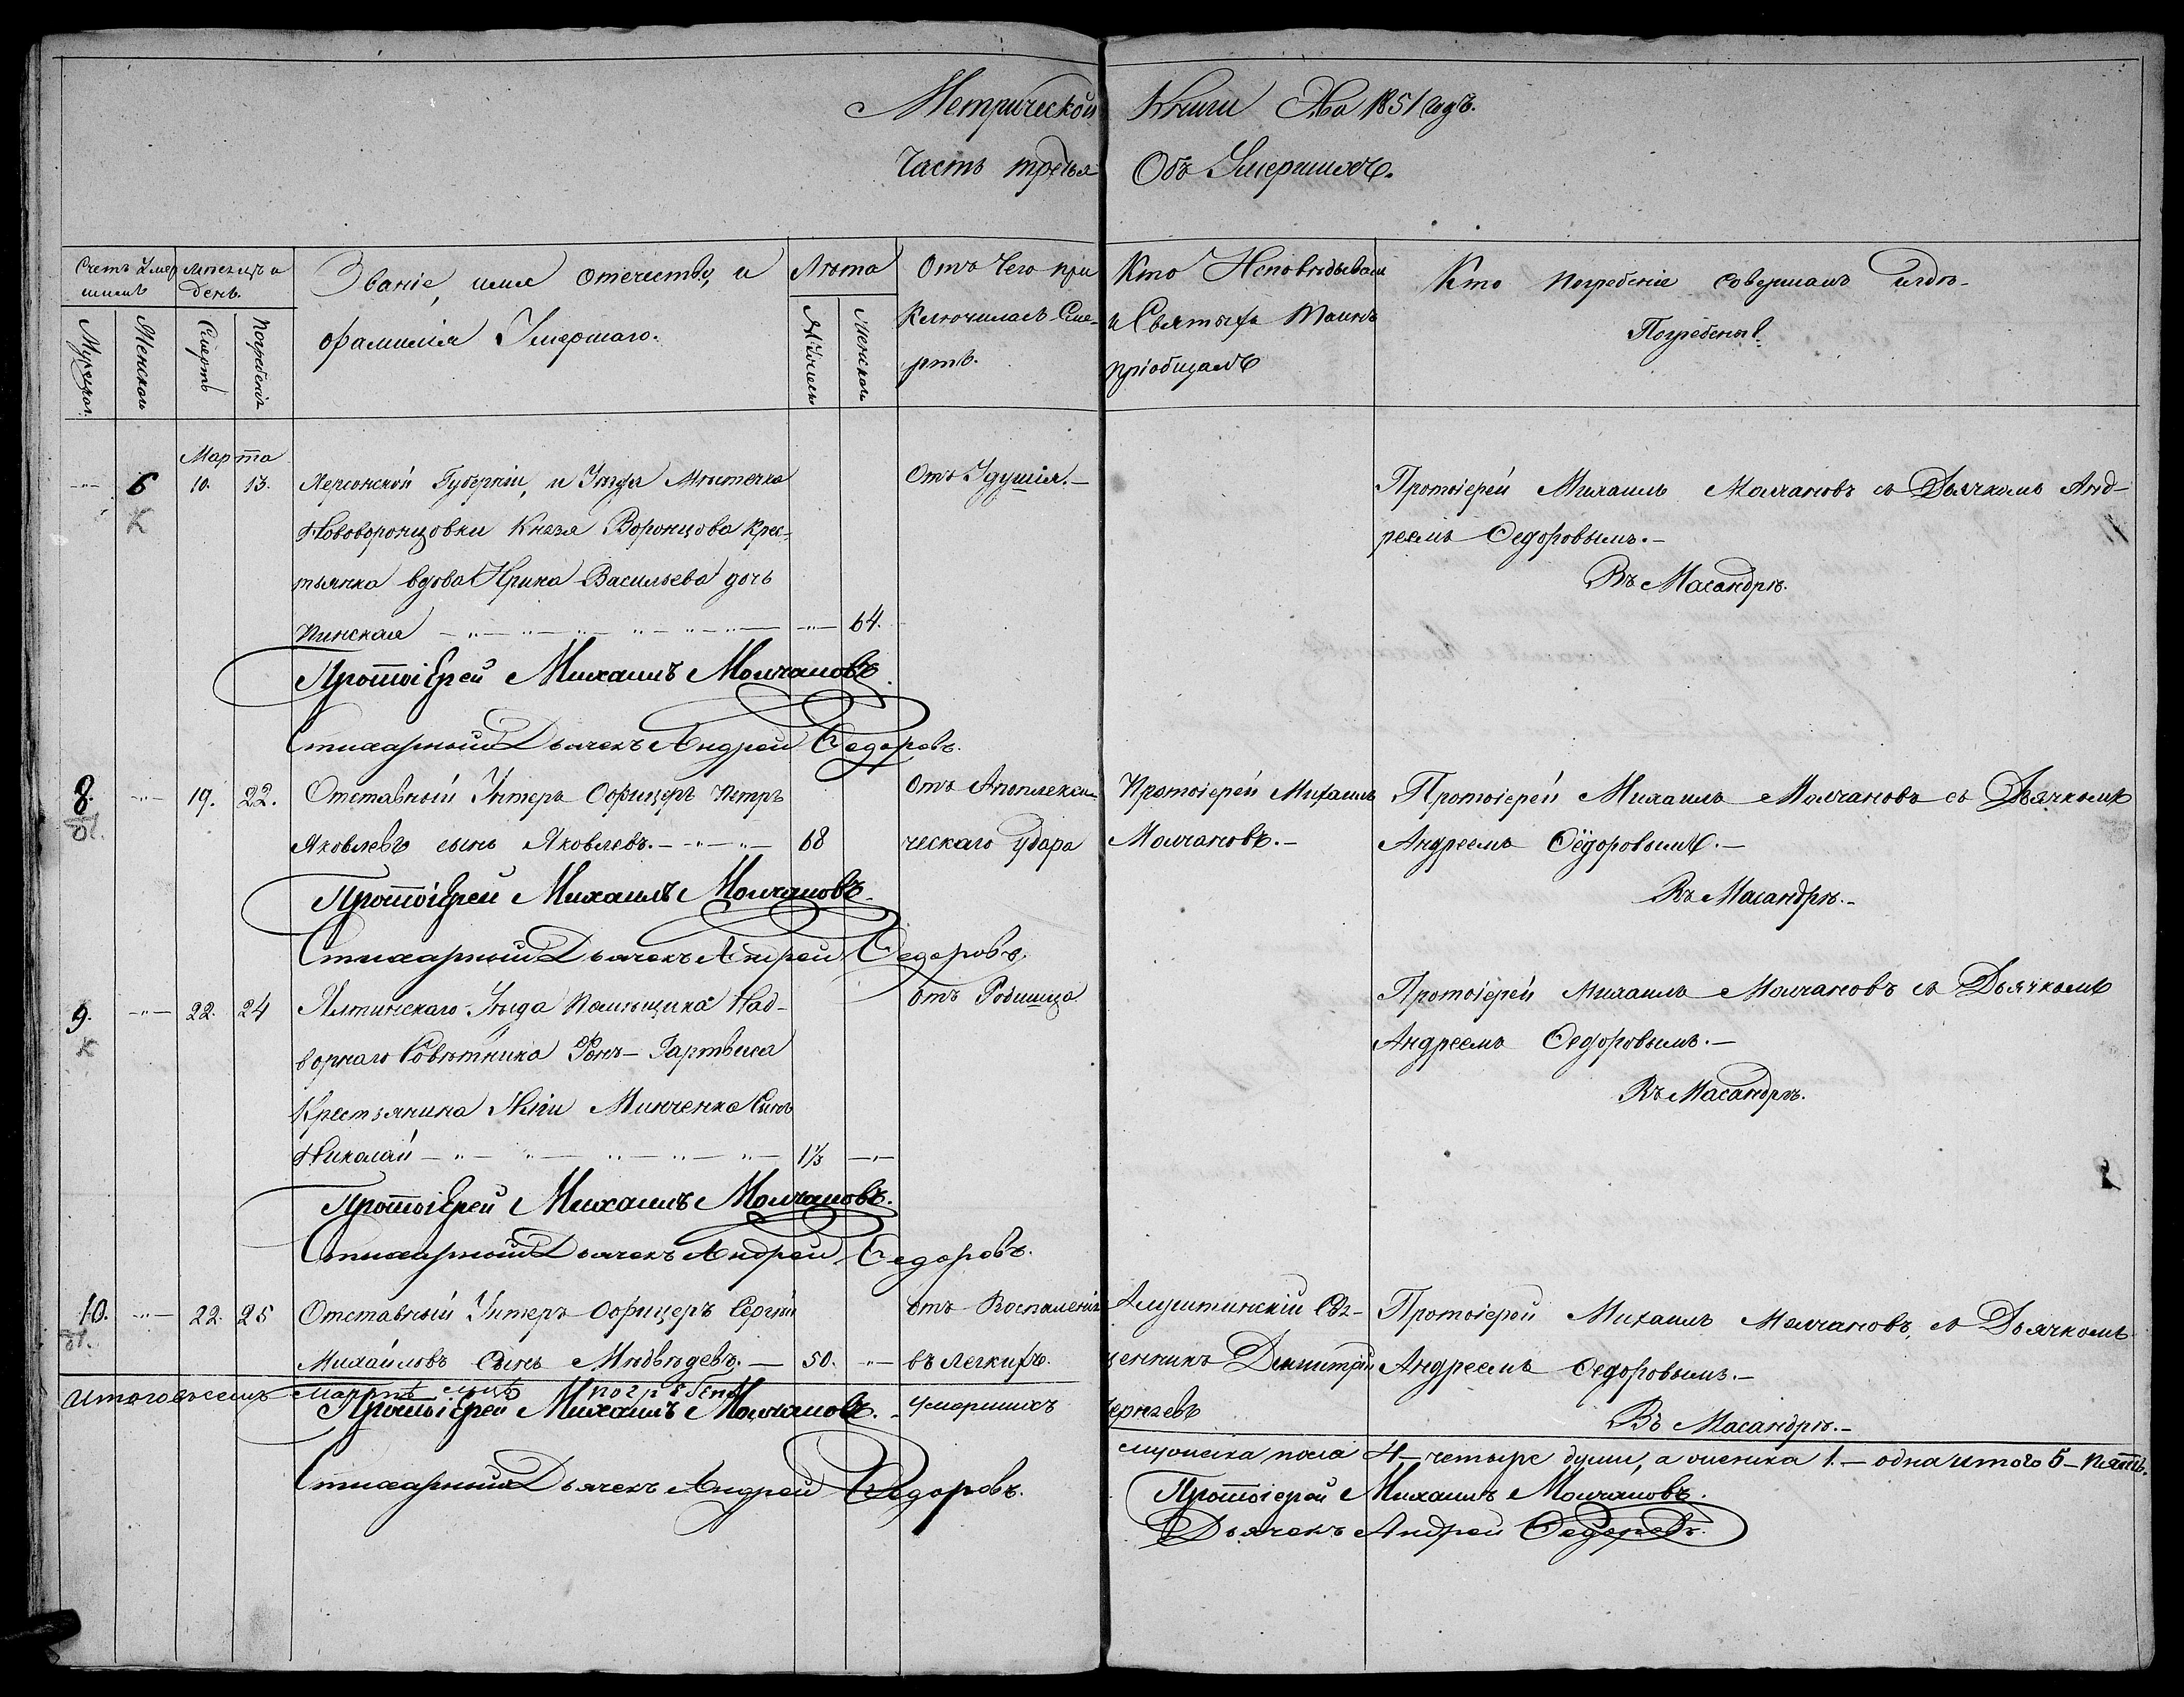 Метрической Книги На 1851 годъ.
Часть третья Объ Умершихъ.
Счетъ Умершихъ
Мужеска.
Женска
Мѣсяцъ и день.
Смерть
Погребенія
Званіе, имя отечество, и фамилія Умершаго.
Лѣта
Мужеска
Женска
Отъ Чего при
ключилась Сме-
рть.
Кто Исповѣдывалъ
и Святыхъ Таинъ
пріобщалъ
Кто Погребеніе Совершалъ и гдѣ-
Погребены.
Марта
6 10. 13. Херсонской Губерніи, и Уѣзда Мѣстечка Отъ Удушія.- Протоіерей Михаилъ Молчановъ съ Дьячкомъ Анд-
К Нововоронцовки Князя Воронцова Крес- реемъ Ѳедоровымъ.-
тьянка вдова Ирина Васильева дочь Въ Масандрѣ.
Пинская 64.
Протоіерей Михаилъ Молчановъ.
Стихарный Дьячекъ Андрей Ѳедоровъ.
8. 19. 22. Отставный Унтеръ Офицеръ Петръ Отъ Апоплекси- Протоіерей Михаилъ Протоіерей Михаилъ Молчановъ съ Дьячкомъ
Яковлевъ сынъ Яковлевъ. 68 ческаго Удара Молчановъ.- Андреемъ Ѳёдоровымъ.-
Въ Масандрѣ.-
Протоіерей Михаилъ Молчановъ.
Стихарный Дьячекъ Андрей Ѳедоровъ.
9. 22. 24 Ялтинскаго Уѣзда Помѣщика Над- отъ Родимца Протоіерей Михаилъ Молчановъ съ Дьячкомъ
К ворнаго Совѣтника Фонъ-Гартвиса Андреемъ Ѳедоровымъ.-
Крестьянина Минченка Сынъ Въ Масандрѣ.
Николай 1⅓
Протоіерей Михаилъ Молчановъ.
Стихарный Дьячекъ Андрей Ѳедоровъ.
10. 22. 25 Отставный Унтеръ Офицеръ Сергѣй отъ Воспаленія Алуштинскій Свя- Протоіерей Михаилъ Молчановъ, съ Дьячкомъ
Михайловъ Сынъ Мѣдвѣдевъ.- 50. въ легкихъ. щенникъ Димитрій Андреемъ Ѳедоровымъ.-
Чернявъ Въ Масандрѣ.-
Итого въ семъ Мартѣ м-цѣ погребено Умершихъ
мужеска пола 4-четыре души, а женска 1.-одна итого 5-пять.
Протоіерей Михаилъ Молчановъ.
Стихарный Дьячекъ Андрей Ѳедоровъ.
Протоіерей Михаилъ Молчановъ.
Дьячекъ Андрей Ѳедоровъ.